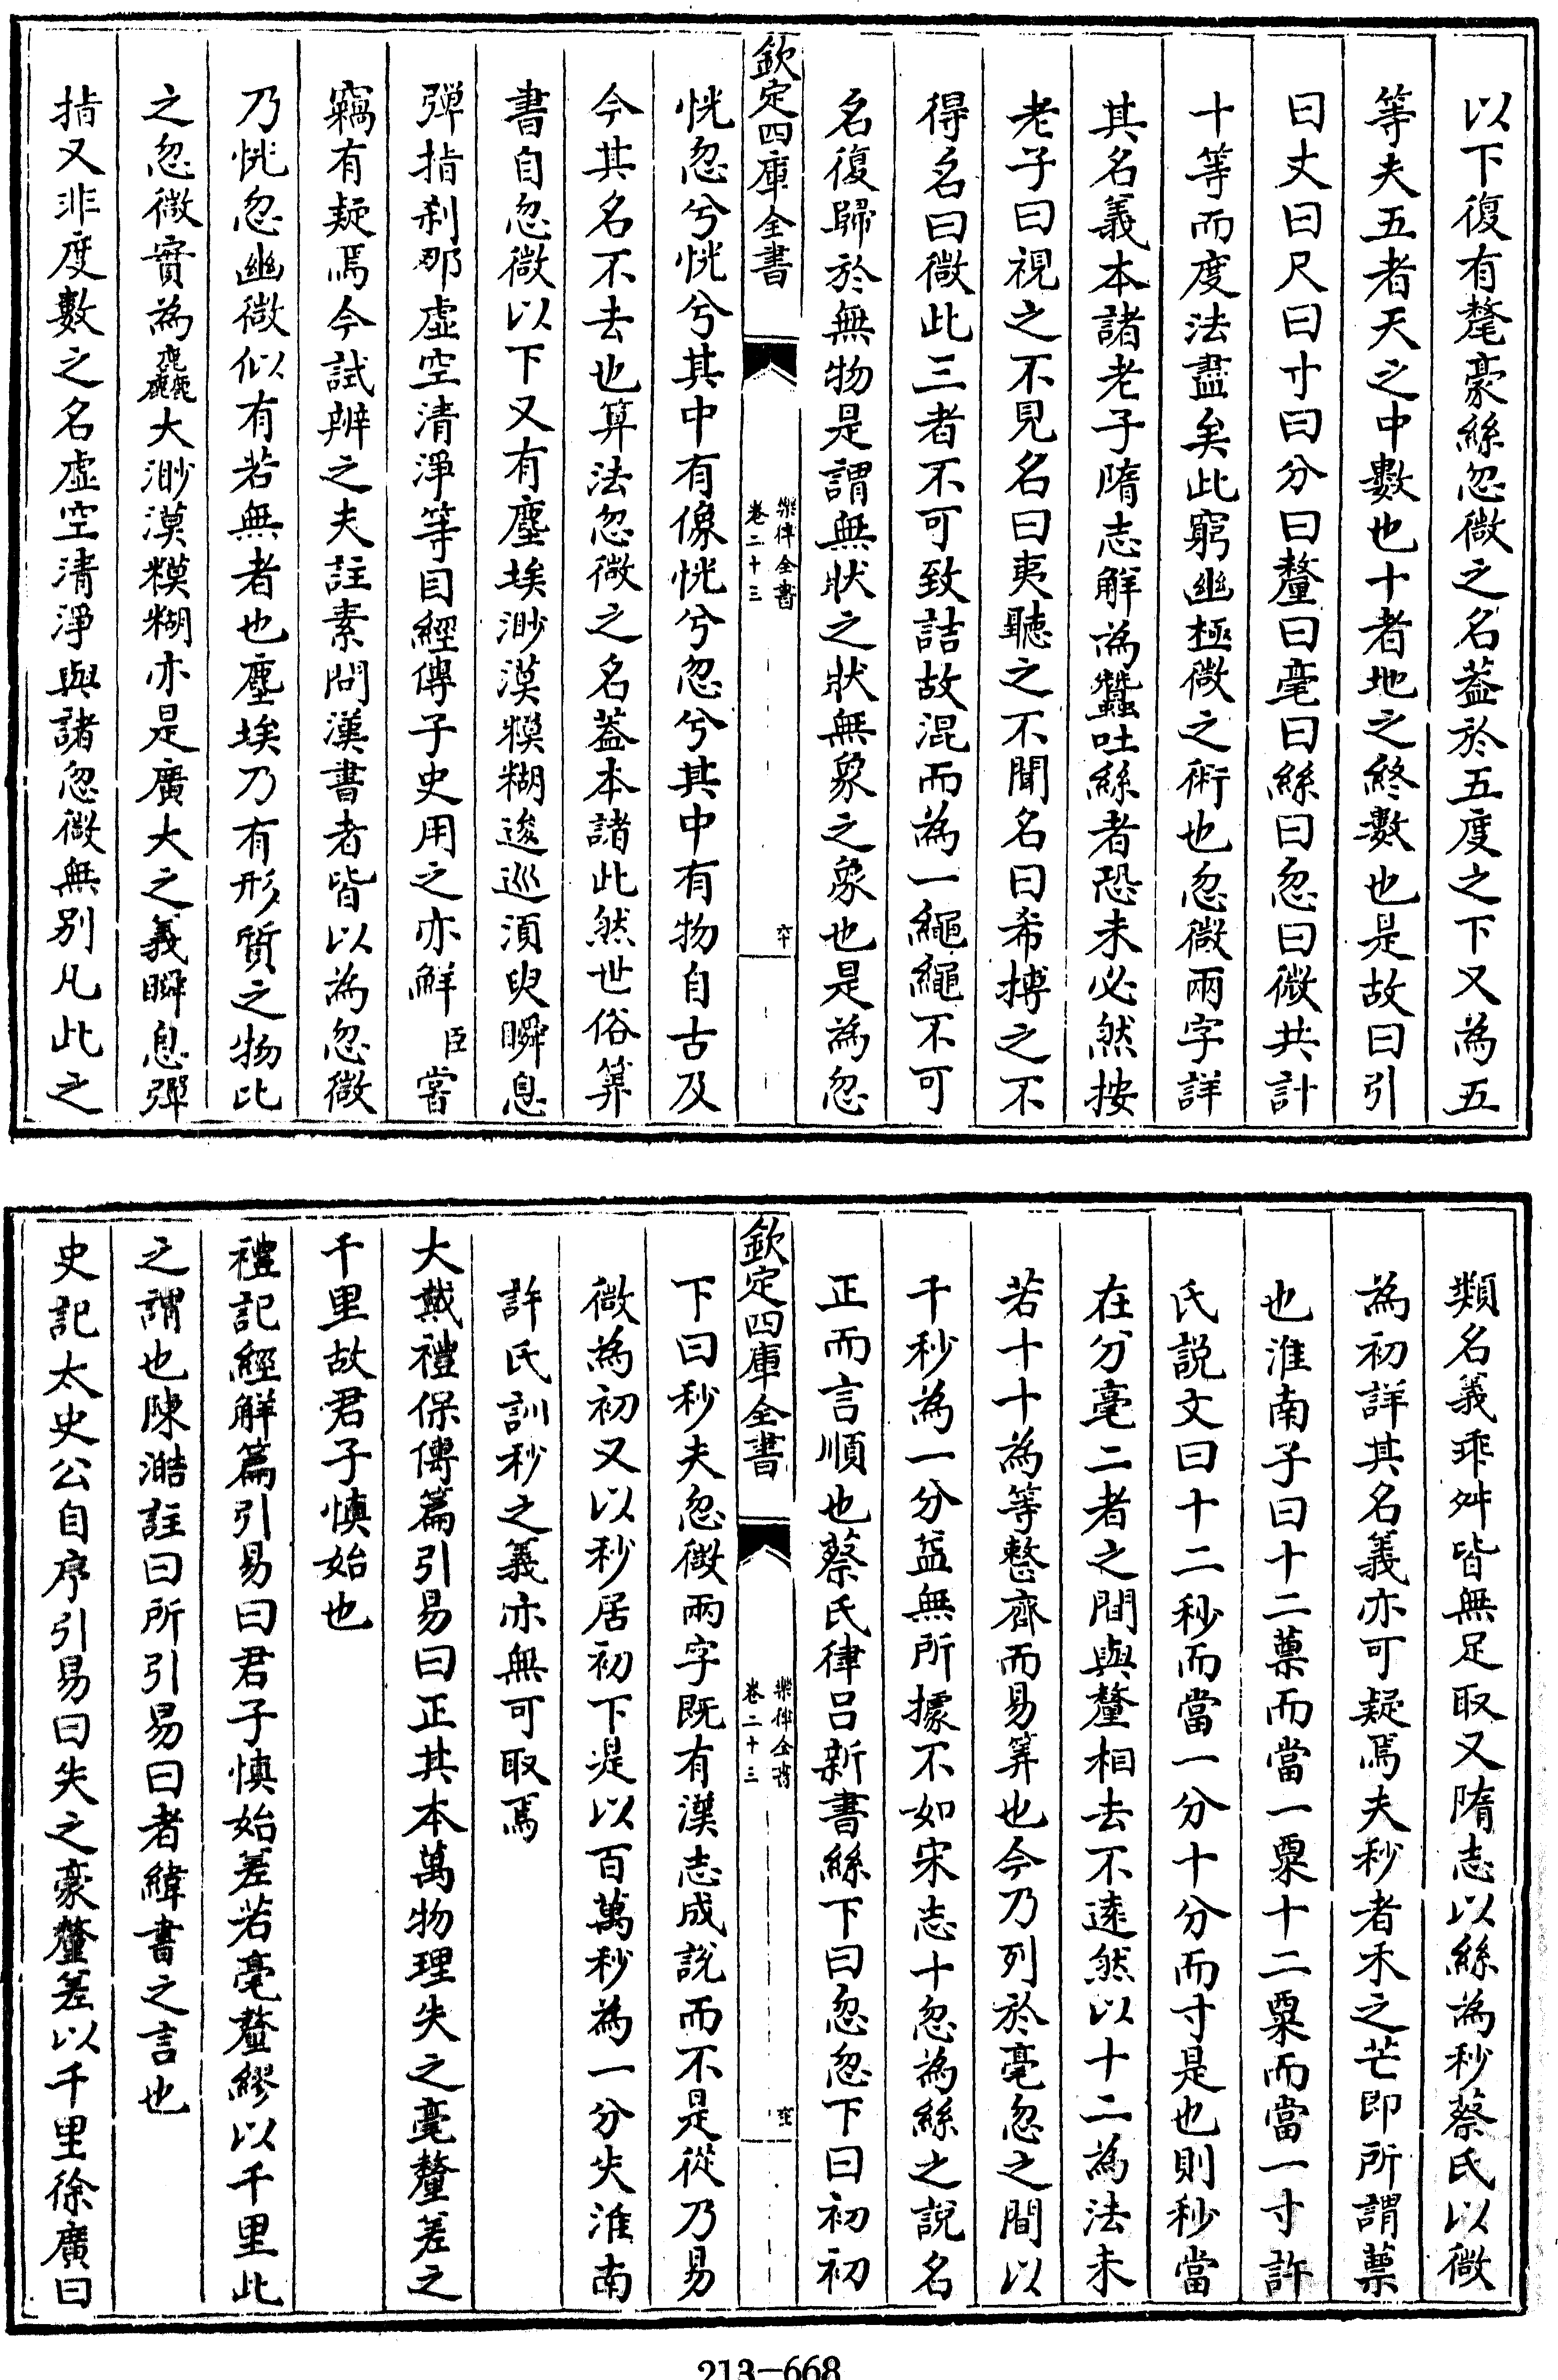 以下復有氂豪絲忽微之名葢於五度之下又為五
等夫五者天之中數也十者地之終數也是故曰引
曰丈曰尺曰寸曰分曰釐曰毫曰絲曰忽曰微共計
十等而度法盡矣此窮幽極微之術也忽微兩字詳
其名義本諸老子隋志解為蠶吐絲者恐未必然按
老子曰視之不見名曰夷聽之不聞名曰希搏之不
得名曰微此三者不可致詰故混而為一繩繩不可
名復歸於無物是謂無狀之狀無象之象也是為忽
欽定四庫全書
樂律全書
卷二十三
恍忽兮恍兮其中有像恍兮忽兮其中有物自古及
今其名不去也算法忽微之名葢本諸此然世俗筭
書自忽微以下又有塵埃渺漠糢糊逡巡須臾瞬息
彈指刹那虛空清淨等目經傳子史用之亦鮮臣嘗
竊有疑焉今試辨之夫註素問漢書者皆以為忽微
乃恍忽幽微似有若無者也塵埃乃有形質之物比
之忽微實為麤大渺漠糢糊亦是廣大之義瞬息彈
指又非度數之名虛空清淨與諸忽微無別凡此之
類名義乖舛皆無足取又隋志以絲為秒蔡氏以微
為初詳其名義亦可疑焉夫秒者禾之芒即所謂蔈
也淮南子曰十二蔈而當一粟十二粟而當一寸許
氏説文曰十二秒而當一分十分而寸是也則秒當
在分毫二者之間與釐相去不逺然以十二為法未
若十十為等整齊而易筭也今乃列於毫忽之間以
千秒為一分葢無所據不如宋志十忽為絲之說名
正而言順也蔡氏律吕新書絲下曰忽忽下曰初初
欽定四庫全書
樂律全書
卷二十三
下曰秒夫忽微兩字既有漢志成說而不是從乃易
微為初又以秒居初下是以百萬秒為一分失淮南
許氏訓秒之義亦無可取焉
大戴禮保傅篇引易曰正其本萬物理失之毫釐差之
千里故君子慎始也
禮記經解篇引易曰君子慎始差若毫釐繆以千里此
之謂也陳澔註曰所引易曰者緯書之言也
史記太史公自序引易曰失之豪釐差以千里徐廣曰
213-668